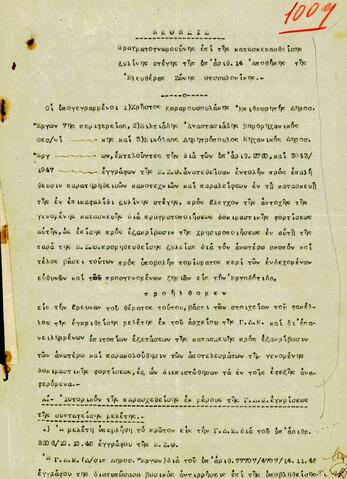 1009
ΕΚΘΕΣΙΣ
Πραγματογνωμοσύνης ἐπί τῆς κατασκευασθείσης
ξυλίνης στέγης τῆς ὑπ'ἀριθ.14 Ἀποθήκης τῆς
Ἐλευθέρας Ζώνης Θεσσαλονίκης.-
Οἱ ὑπογεγραμμένοι 1)Χρῆστος Καραφουσουλάκης Ἐπιθεωρητής Δημοσ.
Ἔργων 7ης περιφερείας, 2)Μιλτιάδης Ἀναστασιάδης Νομομηχανικός
Θεσ/νί κης καί 3)Νικόλαος Δημητρόπουλος Μηχανικός Δημοσ.
Ἔργ ων, ἐκτελοῦντες τήν διά τῶν ὑπ'ἀριθ. καί
1947 ἐγγράφων τῆς Μ.Ε.Θ. ἀνατεθεῖσαν ἐντολήν πρός ἐπαλή
θευσιν παρατηρηθεισῶν κακοτεχνιῶν καί παραλείψεων ἐν τῇ κατασκευῇ
τῆς ἐν ἐπικεφαλίδι ξυλίνης στέγης, πρός ἔλεγχον τῆς ἀντοχῆς τῆς
γενομένης κατασκευῆς διά πραγματοποιήσεως δοκιμαστικῆς φορτίσεως
αὐτῆς, ὡς ἐπίσης πρός ἐξακρίβωσιν τῆς χρησιμοποιήσεως ἐν αὐτῇ τῆς
παρά τῆς Μ.Ε.Θ. προμηθευθείσης ξυλείας διά τόν ἀνωτέρω σκοπόν καί
τέλος βάσει τούτων πρός ὑποβολήν πορίσματος περί τῶν ἐνδεχομένων
εὐθυνῶν καί τῶν προσγενομένων ζημιῶν εἰς τήν Ἐργοδότιδα.
προήλθομεν
εἰς τήν ἔρευναν τοῦ θέματος τούτου, βάσει τῶν στοιχείων τοῦ φακέλ-
λου τῆς ἐγκριθείσης μελέτης ἐκ τοῦ ἀρχείου τῆς Γ.Δ.Μ. καί δι'ἐπα-
νειλημμένων ἐπιτοπίων ἐξετάσεων τῆς κατασκευῆς πρός ἐξακρίβωσιν
τῶν ἀνωτέρω καί παρακολούθησιν τῶν ἀποτελεσμάτων τῆς γενομένης
δοκιμαστικῆς φορτίσεως, ἐξ ὧν διεπιστώθησαν τά ἐν τοῖς ἐφεξῆς ἀνα-
φερόμενα.-
Α.- Ἱστορικόν τῆς παρασχεθείσης ἐκ μέρους τῆς Γ.Δ.Μ. ἐγκρίσεως
τῆς συνταγείσης μελέτης.
1) Ἡ μελέτη ὑπεβλήθη τό πρῶτον εἰς τήν Γ.Δ.Μ. διά τοῦ ὑπ'ἀριθ.
3806/20.10.45 ἐγγράφου τῆς Μ.Ε.Θ
Ἡ Γ.Δ.Μ. (Δ/σις Δημοσ.Ἔργων) διά τοῦ ὑπ'ἀριθ. 77707/4797/14.11.45
ἐγγράφου τῆς διετύπωσε βασικάς ἀντιρρήσεις ἐπί τῆς ὑποβληθείσης